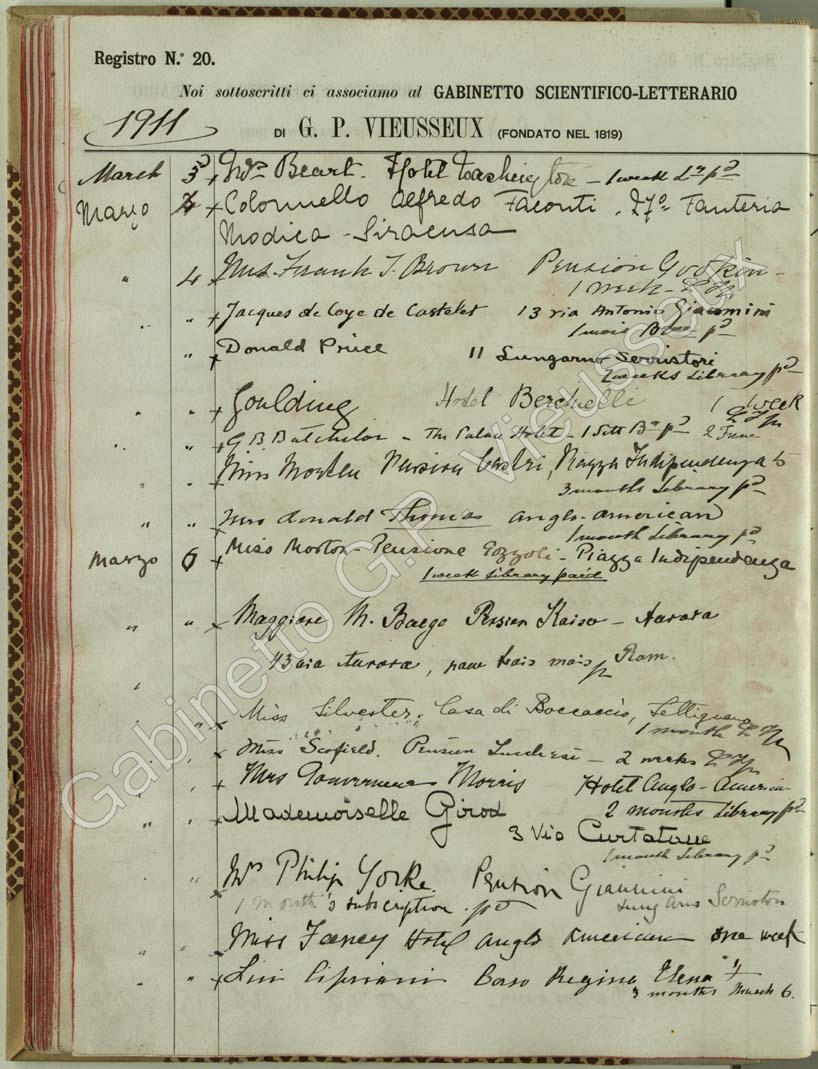 Registro N.° 20.
Noi sottoscritti ci associamo al GABINETTO SCIENTIFICO-LETTERARIO
1911
DI G. P. VIEUSSEUX (FONDATO NEL 1819)
March 3 Beart. Hotel Washington – 1 week pd
Marzo 4 Colonnello Alfredo Faconti. 27° Fanteria
Modica - Siracusa
" 4 Mrs Frank T. Brown Pension Godkin –
1 week –
" Jacques de Coye de Castelet 13 via Antonio Giacomini
1 mois pd
" Donald Price 11 Lungarno Serristori
2 weeks Library pd
" " Goulding Hotel Berchielli 1 week
" " G B Batchelor – The Palace Hotel – 1 Sett pd
Miss Piazza Indipendenza 5
3 months Library pd
" " Mrs Donald Thomas Anglo-American
1 month Library pd
Marzo 6 Miss Morton – Pensione Pozzoli – Piazza Indipendenza
1 week Library paid
" " Maggiore M. Kaiser – Aurora
43 via Aurora, pour trois mois
" " Miss Silvester, Casa di Boccaccio, Settignano
1 month
" " Miss Scofield. Pension Lucchesi – 2 weeks
" " Mrs Gouverneur Morris Hotel Anglo-American
2 months Library pd
" " Mademoiselle Girod
3 Via Curtatone
1 month Library pd
" " Philip Yorke. Pension Giannini
1 month's subscription pd Lung'Arno Serristori
" " Miss Hotel Anglo American one week
" " Cipriani Corso Regina Elena
3 months March 6.
Gabinetto G.P. Vieusseux